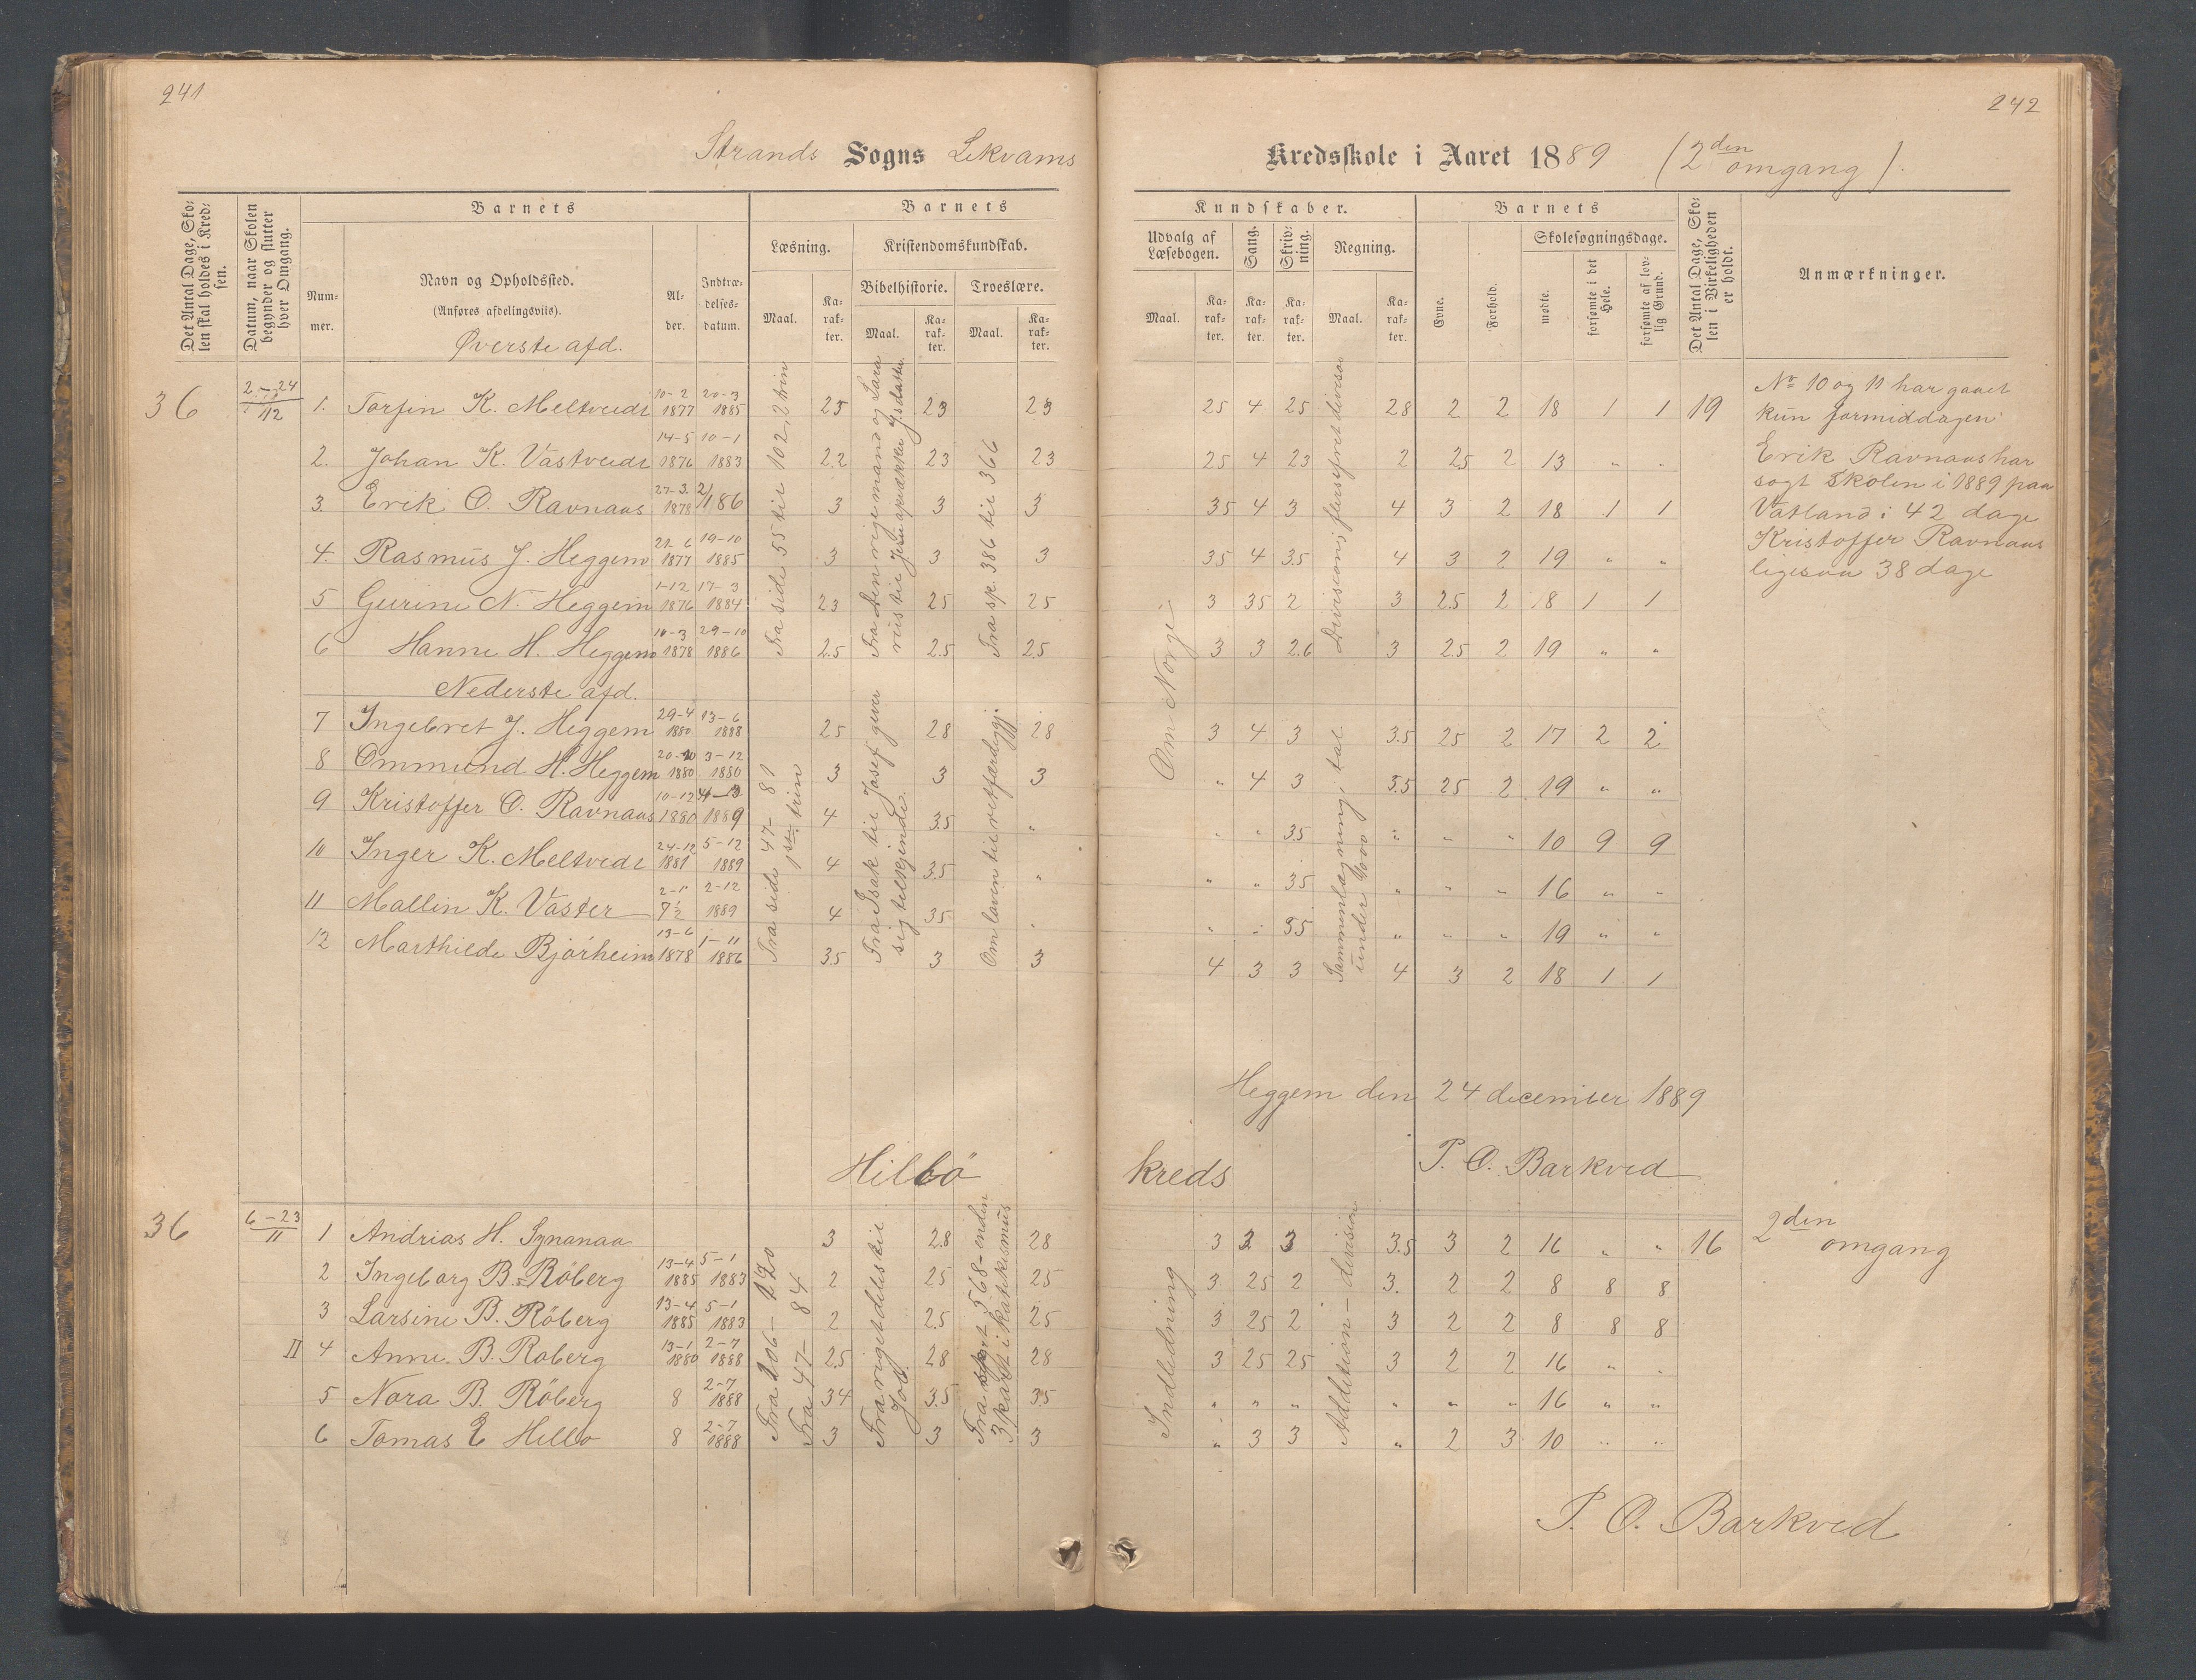 241
242
Strands Sogns Lekvams Kredsskole i Aaret 1889 (2den omgang).
Det Antal Dage, Sko-
len skal holdes i Kred-
sen.
Datum, naar Skolen
begynder og slutter
hver Omgang.
Barnets
Num-
mer.
Navn og Opholdssted.
(Anføres afdelingsviis).
Øverste afd.
Al-
der.
Indtræ-
delses-
datum.
Barnets
Læsning.
Maal.
Ka-
rak-
ter.
Kristendomskundskab.
Bibelhistorie.
Maal.
Ka-
rak-
ter.
Troeslære.
Maal.
Ka-
rak-
ter.
Kundskaber.
Udvalg af
Læsebogen.
Maal.
Ka-
rak-
ter.
Sang.
Ka-
rak-
ter.
Skriv-
ning.
Ka-
rak-
ter.
Regning.
Maal.
Ka-
rak-
ter.
Barnets
Evne.
Forhold.
Skolesøgningsdage.
mødte.
forsømte i det
Hele.
forsømte af lov-
lig Grund.
Det Antal Dage, Sko-
len i Virkeligheden
er holdt.
Anmærkninger.
36 2-24/12 1. Torfin K. Meltvedt 10-2 1877 20-3 1885 25 23 23 25 4 25 28 2 2 18 1 1 19
2. Johan K. Vastvedt 14-5 1876 10-1 1883 2.2 23 23 25 4 23 2 25 2 13 " "
3. Erik O. Ravnaas 27-3 1878 2/1 86 3 3 3 35 4 3 4 3 2 18 1 1
4. Rasmus J. Heggem 21-6 1877 19-10 1885 3 3 3 35 4 35 4 3 2 19 " "
5 Gurine N. Heggem 1-12 1876 17-3 1884 23 25 25 3 35 2 3 2.5 2 18 1 1
6 Hanne H. Heggem 10-3 1878 29-10 1886 2.5 2.5 25 3 3 2.6 3 25 2 19 " "
Fra side 55 til 102, 2 trin
Fra den rige mand og Lara
rus til Jesu
Fra sp. 386 til 366
Division, flersifret divisor
Om Norge
Nederste afd.
7 Ingebret J. Heggem 29-4 1880 13-6 1888 25 28 28 3 4 3 3.5 25 2 17 2 2
8 Ommund H. Heggem 20-10 1880 3-12 1880 3 3 3 " 4 3 3.5 25 2 19 " "
9 Kristoffer O. Ravnaas 10-12 1880 1889 4 3.5 " " " 35 " " " 10 9 9
10 Inger K. Meltvedt 24-12 1881 5-12 1889 4 3.5 " " " 35 " " " 16 " "
11 Mallin K. Vaster 2-1 7½ 2-12 1889 4 35 " " " 35 " " " 19 " "
12 Marthilde Bjørheim 13-6 1878 1-11 1886 35 3 3 4 3 3 4 3 2 18 1 1
Fra side 47-81
1ste trin
Fra Isak til Josef giver
sig tilkjende.
Om loven til retfærdiggj.
Sammenlægning, tal
under 1000
No 10 og 11 har gaaet
kun formiddagen
Erik Ravnaas har
søgt Skolen i 1889 paa
Vatland i 42 dage
Kristoffer Ravnaas
ligesaa 38 dage
Heggem den 24 december 1889
P. O. Barkved
Hilbø kreds
36 6-23/11 1 Andrias H. Synanaa 3 28 28 3 3 3 3.5 3 2 16 " " 16
2 Ingeborg B. Röberg 13-4 1885 5-1 1883 2 25 25 3 25 2 3. 2 2 8 8 8
3 Larsine B. Röberg 13-4 1885 5-1 1883 2 2.5 25 3 25 2 3 2 2 8 8 8
II 4 Anne B. Roberg 13-1 1880 2-7 1888 2.5 28 28 3 25 25 3 2 2 16 " "
5 Nora B. Röberg 8 2-7 1888 34 3.5 35 " " " " " " 16 " "
6 Tomas E Hillo 8 2-7 1888 3 3 3 " 3 3 " 2 3 10 " "
Fra 106-120
Fra 47-84
Fra riget deles til
Job
Fra 568-enden
3 part i katekismus
Indledning
Addition-division
2den
omgang
P. O. Barkved